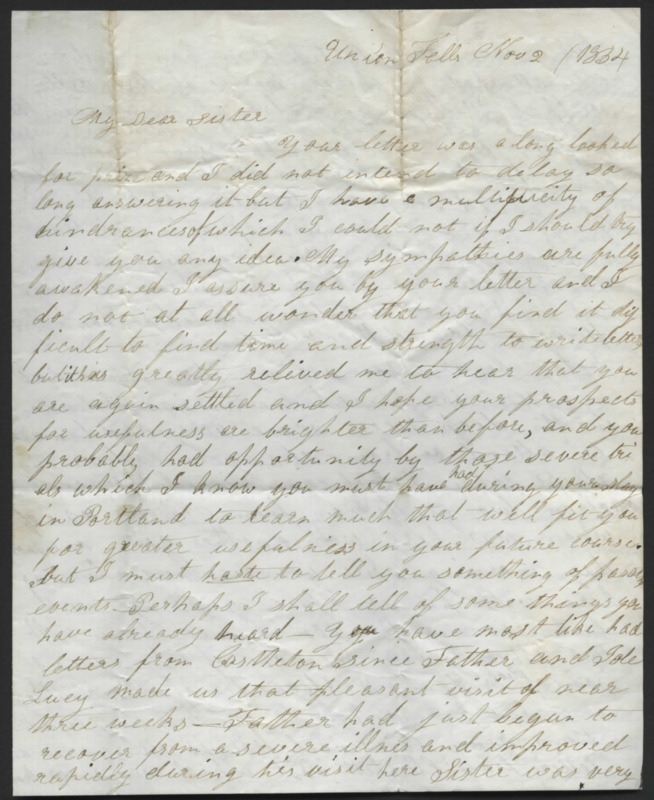 Union Falls Nov 2 / 1834
My Dear Sister
Your letter was a long looked
for and I did not intend to delay so
long answering it but I have a multiplicity of
hindrances of which I could not if I should try
give you any idea. My sympathies are fully
awakened I assure you by your letter and I
do not at all wonder that you find it dif
ficult to find time and strength to write letters
but it has greatly relived me to hear that you
are again settled and I hope your prospects
for usefulness are brighter than before, and you
probably had opportunity by those severe tri
als which I know you must have had during your stay
in Portland to learn much that will fit you
for greater usefulness in your future course.
but I must haste to tell you something of passing
events - Perhaps I shall tell of some things you
have already heard - You have most like had
letters from Castleton since Father and
Lucy made us that pleasant visit of near
three weeks - Father had just begun to
recover from a severe illnes and improved
rapidly during his visit here Sister was very